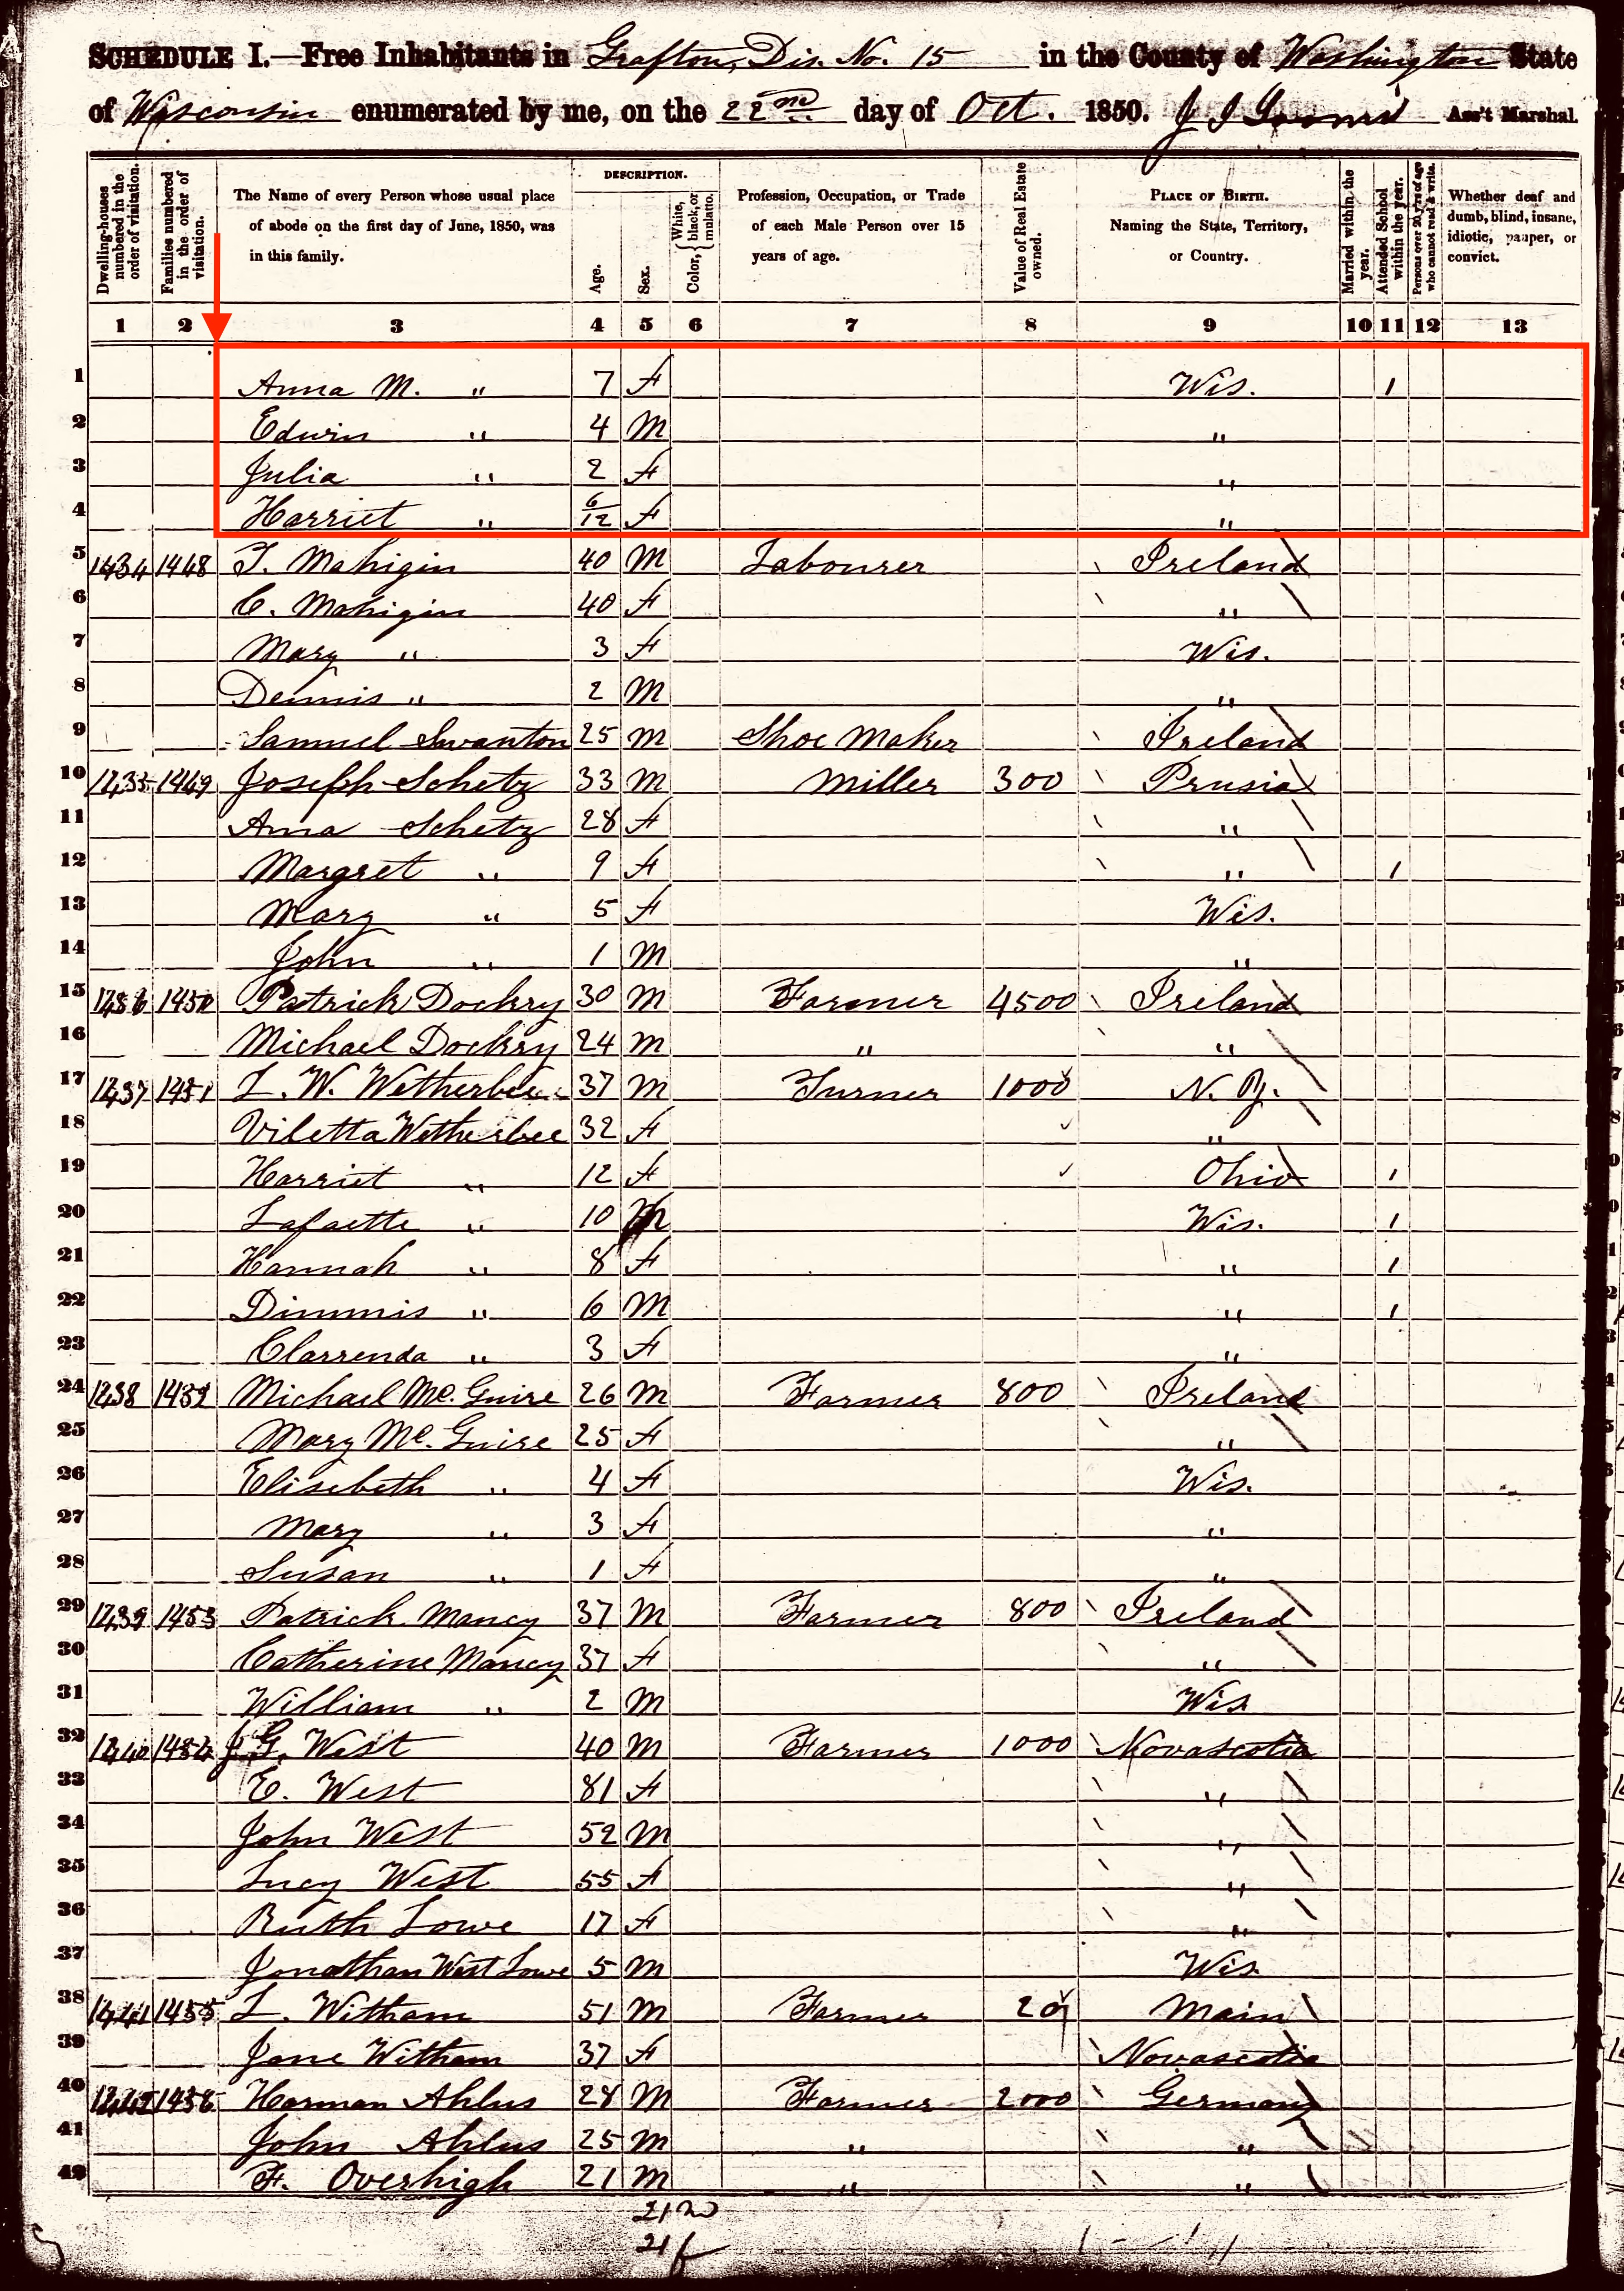 SCHEDULE I.—Free Inhabitants in Grafton, Dis. No. 15 in the County of Washington State
of Wisconsin enumerated by me, on the 22nd day of Oct. 1850. J I Loomis Ass't Marshal.
Dwelling-houses numbered in the order of visitation.
Families numbered in the order of visitation.
The Name of every Person whose usual place of abode on the first day of June, 1850, was in this family.
DESCRIPTION.
Age.
Sex.
Color, White, black, or mulatto.
Profession, Occupation, or Trade of each Male Person over 15 years of age.
Value of Real Estate owned.
PLACE OF BIRTH. Naming the State, Territory, or Country.
Married within the year.
Attended School within the year.
Persons over 20 y'rs of age who cannot read & write.
Whether deaf and dumb, blind, insane, idiotic, pauper, or convict.
1 2 3 4 5 6 7 8 9 10 11 12 13
1 Anna M. " 7 F Wis. 1
2 Edwin " 4 M "
3 Julia " 2 F "
4 Harriet " 6/12 F "
5 1434 1448 T. Mahigin 40 M Labourer Ireland
6 C. Mahigin 40 F "
7 Mary " 3 F Wis.
8 Dennis " 2 M "
9 Samuel Swanton 25 M Shoe Maker Ireland
10 1435 1449 Joseph Schetz 33 M Miller 300 Prusia
11 Anna Schetz 28 F "
12 Margret " 9 F " 1
13 Mary " 5 F Wis.
14 John " 1 M "
15 1436 1450 Patrick Dockry 30 M Farmer 4500 Ireland
16 Michael Dockry 24 M " "
17 1437 1451 L. W. Wetherbee 37 M Turner 1000 N. Y.
18 Viletta Wetherbee 32 F "
19 Harriet " 12 F Ohio 1
20 Lafaette " 10 M Wis. 1
21 Hannah " 8 F " 1
22 Dimmis " 6 M " 1
23 Clarrenda " 3 F "
24 1438 1452 Michael Mc. Guire 26 M Farmer 800 Ireland
25 Mary Mc. Guire 25 F "
26 Elisebeth " 4 F Wis.
27 Mary " 3 F "
28 Susan " 1 F "
29 1439 1453 Patrick Mancy 37 M Farmer 800 Ireland
30 Catherine Mancy 37 F "
31 William " 2 M Wis
32 1440 1454 J. G. West 40 M Farmer 1000 Novascotia
33 E. West 81 F "
34 John West 52 M "
35 Lucy West 55 F "
36 Ruth Lowe 17 F "
37 Jonathan West Lowe 5 M Wis
38 1441 1455 L. Witham 51 M Farmer Main
39 Jane Witham 37 F Novascotia
40 1442 1456 Harman Ahlus 28 M Farmer 2000 Germany
41 John Ahlus 25 M " "
42 F. Overhigh 21 M " "
21 m
21 f